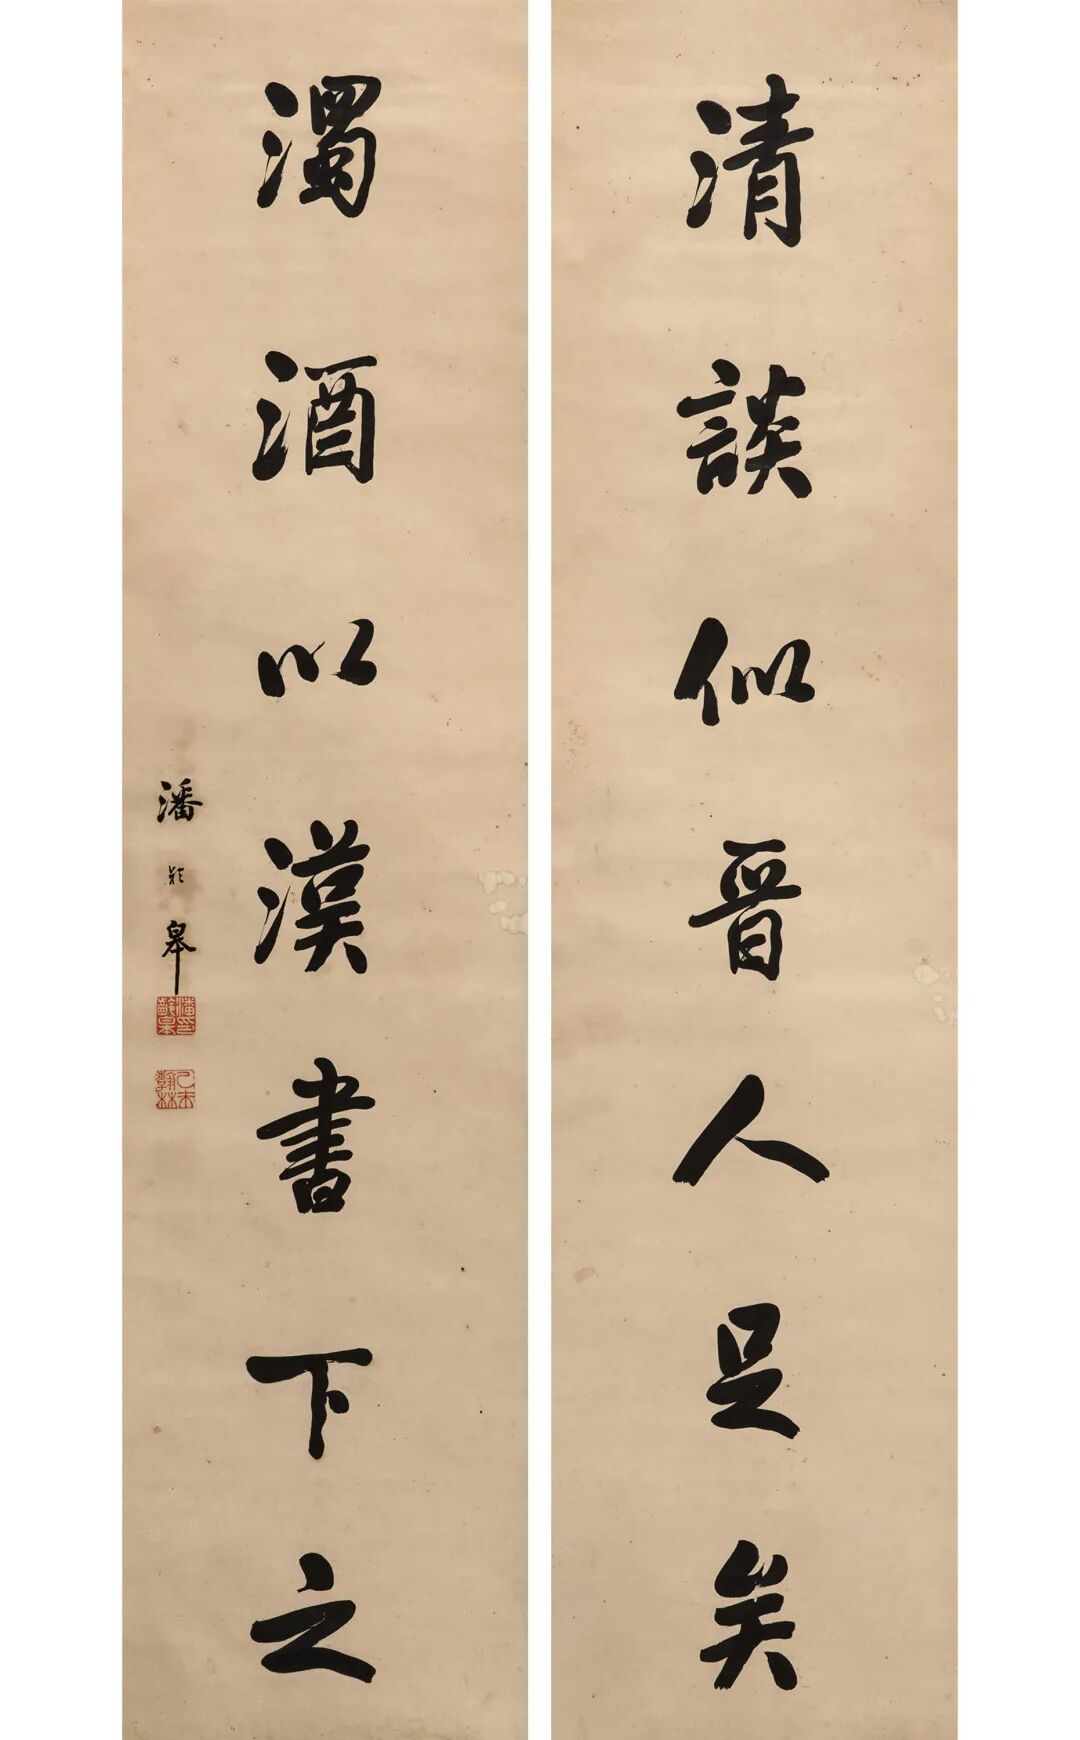 清談似晉人足矣
濁酒以漢書下之
潘齡皋
潘印齡皋
乙未翰林